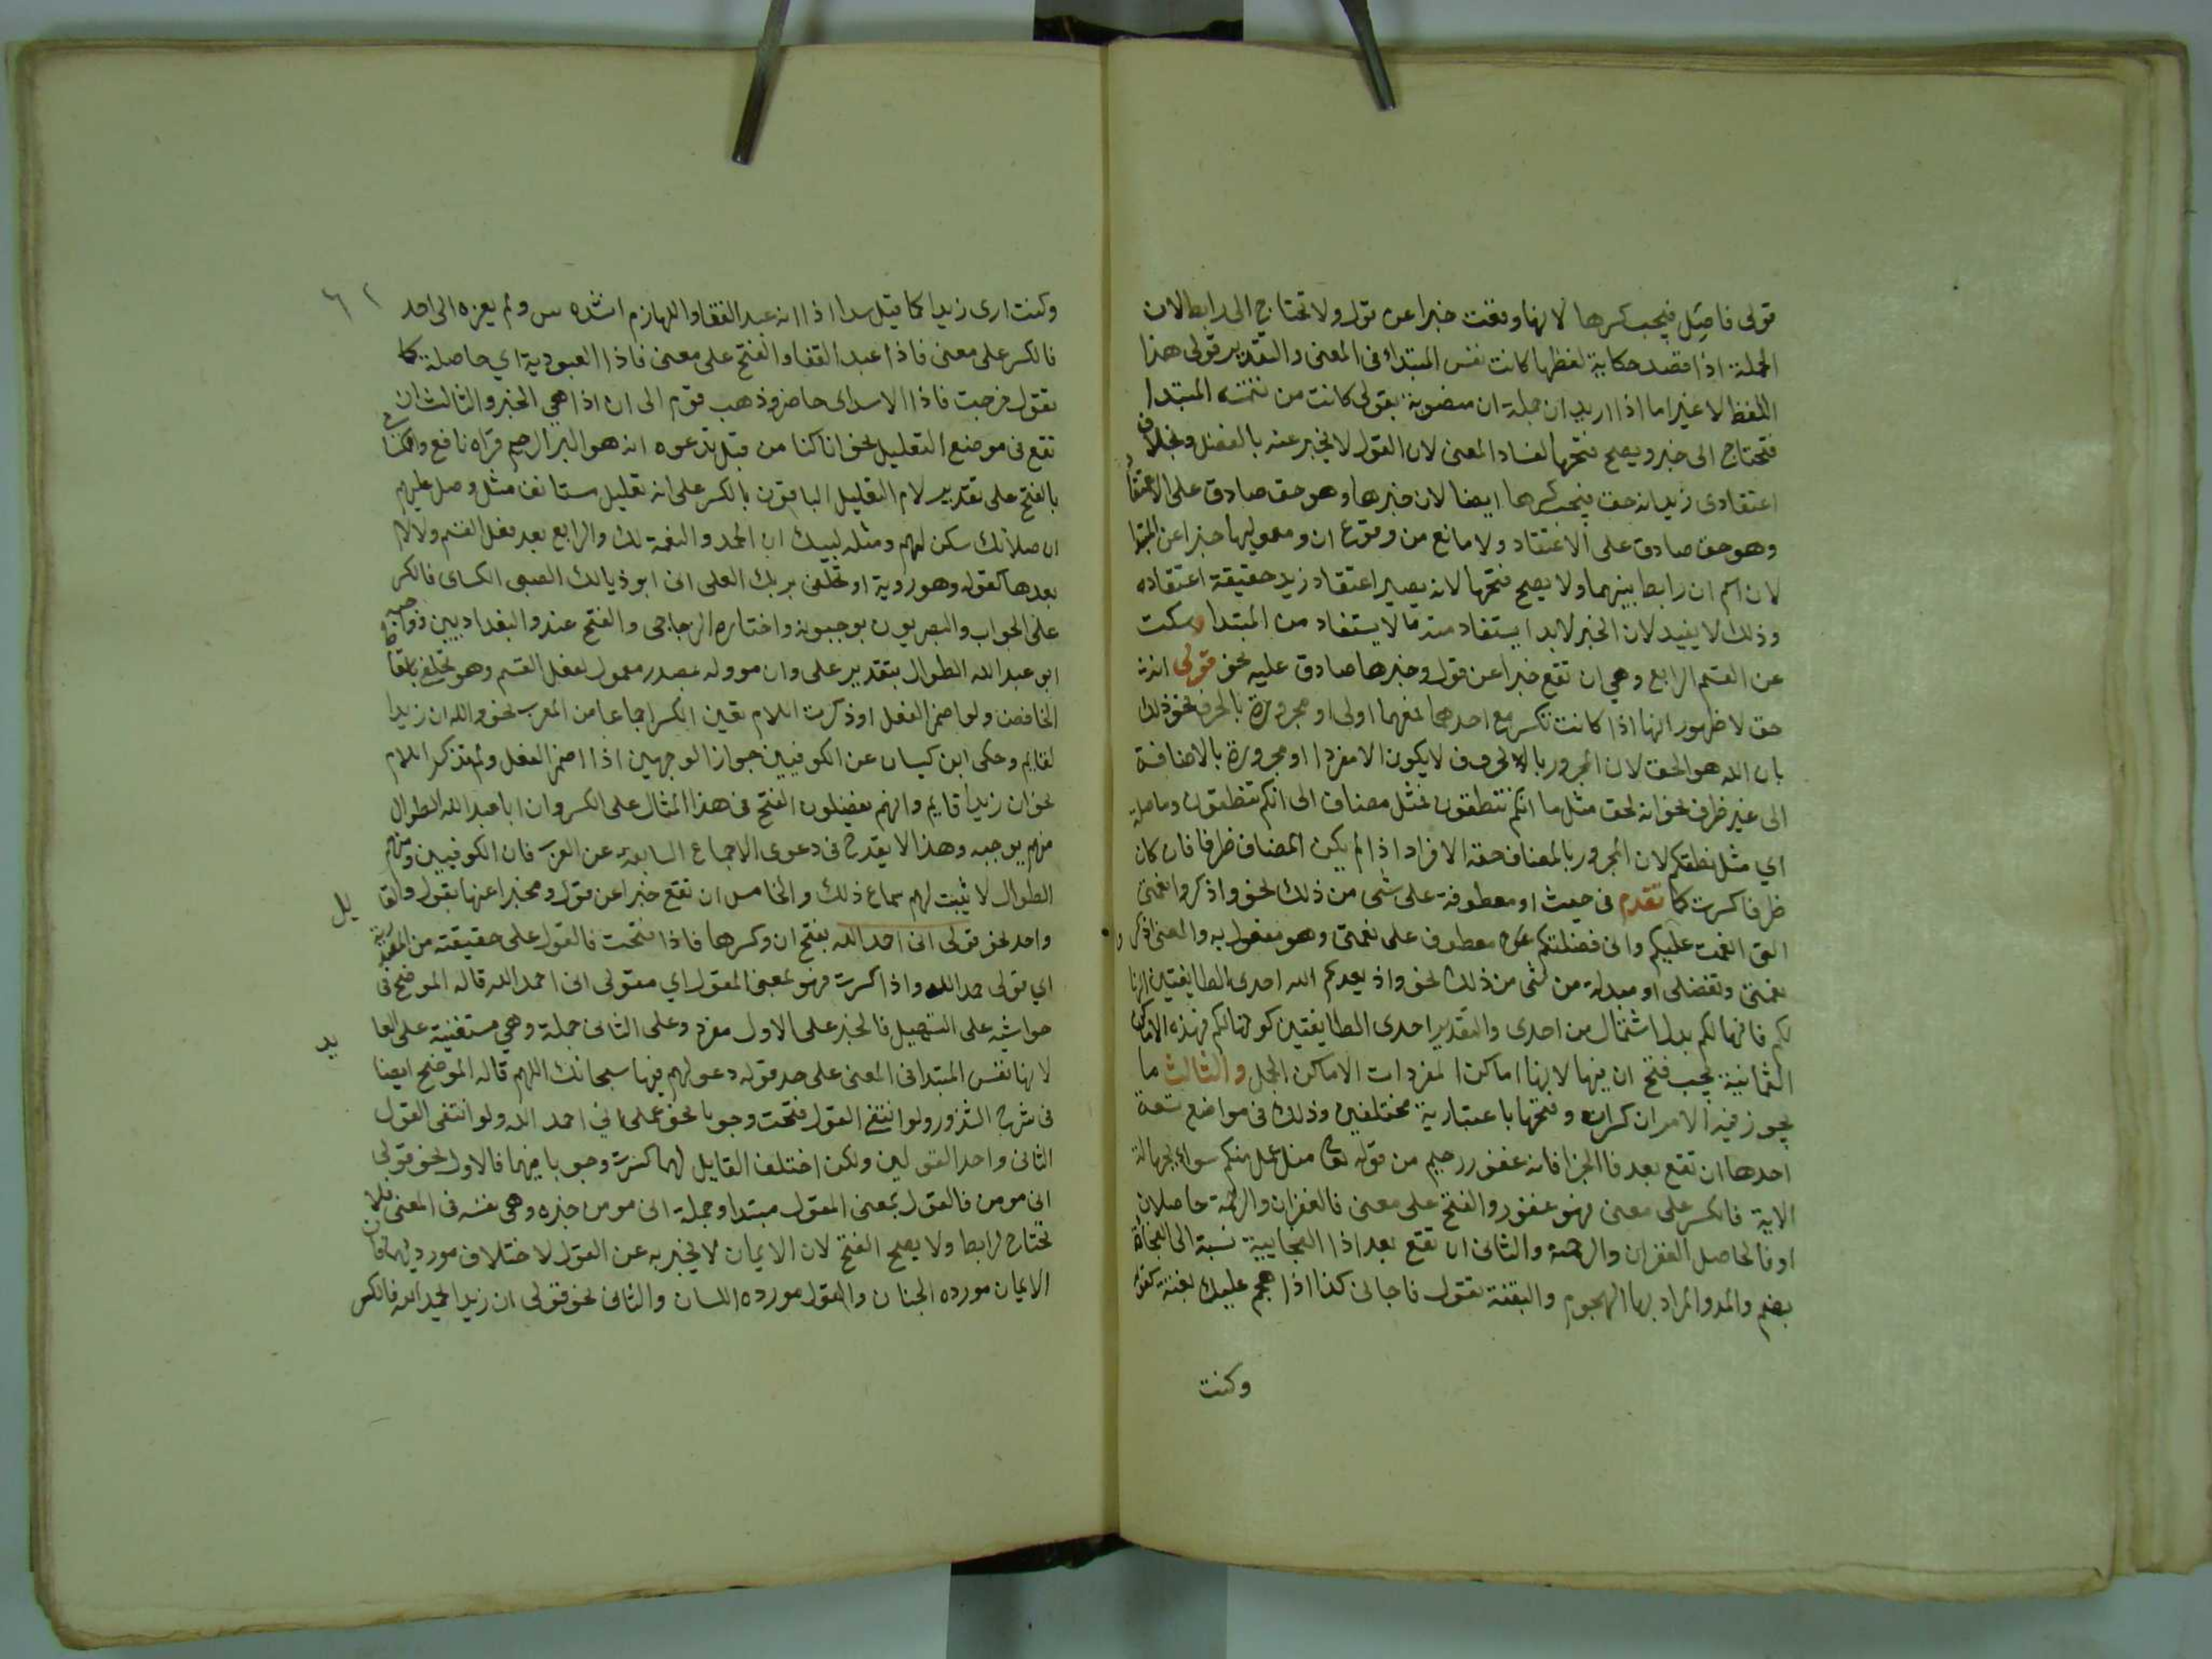 قولى فاضِل فيجب كسرها لانها وقعت خبرا عن قول ولا تحتاج الى رابط لان
الجملة اذا قصد حكاية لفظها كانت نفس المبتداء فى المعنى والتقدير قولى هذا
اللفظ لا غير اما اذا اريد ان جملة ان منصوبة بقولى كانت من تتمته المبتدا
فتحتاج الى خبر ويصح فتحها لفساد المعنى لان القول لا يخبر عنه بالفضل وبخلاف
اعتقادى زيد انه حق فيجب كسرها ايضا لان خبرها وهو حق صادق على الاعتقاد
وهو حق صادق على الاعتقاد ولا مانع من وقوع ان ومعموليها خبرا عن المبتدا
لان اسم ان رابط بينهما ولا يصح فتحها لانه يصير اعتقاد زيد حقيقة اعتقاده
وذلك لا يفيد لان الخبر لابد ايستفاد منه ما لا يستفاد من المبتدا وسكت
عن القسم الرابع وهي ان تقع خبرا عن قول وخبرها صادق عليه نحو قولى انه
حق لا ظهور انها اذا كانت تكسر مع احدهما فمعهما اولى او مجرورة بالحرف نحو ذلك
بان الله هو الحق لان المجرور بالحروف لا يكون الا مفردا او مجرورة بالاضافة
الى غير ظرف نحو انه لحق مثل ما انكم تنطقون فمثل مضاف الى انكم تنطقون وما صلة
اي مثل نطقكم لان المجرور بالمضاف حقه الافراد اذا لم يكن المضاف ظرفا فان كان
ظرفا كسرت كما تقدم فى حيث او معطوفة على شى من ذلك نحو واذكروا نعمتى
التى انعمت عليكم وانى فضلتكم معطوف على نعمتى وهو مفعول به والمعنى اذكروا
نعمتى وتفضلى او مبدلة من شى من ذلك نحو واذ يعدكم الله احدى الطايفتين انها
لكم فانها لكم بدل اشتمال من احدى والتقدير احدى الطايفتين كونها لكم فهذه الاماكن
الثمانية يجب فتح ان فيها لانها اماكن المفردات الاماكن الجمل والثالث ما
يجوز فيه الامران كسران وفتحها باعتبارية مختلفين وذلك فى مواضع تسعة
احدها ان تقع بعد فا الجزا فانه غفور رحيم من قوله تعا من عمل منكم سواء بجهالة
الاية فالكسر على معنى فهو غفور والفتح على معنى فالغفران والرحمة حاصلان
او فالحاصل الغفران والرحمة والثانى ان تقع بعد اذا الفجاييية نسبة الى الفجاة
بضم والمد والمراد بها الهجوم والبغتة تقول فاجانى كذا اذا هجم عليك بغتة كقوله
وكنت
وكنت ارى زيدا كما قيل سيدا اذا انه عبد القفا واللهازم انشده س ولم يعزه الى احد
فالكسر على معنى فاذا عبد القفا والفتح على معنى فاذا العبودية اي حاصلة كما
تقول خرجت فاذا الاسد اى حاضر وذهب قوم الى ان اذا هي الخبر والثالث ان
تقع فى موضع التعليل نحو انا كنا من قبل ندعوه انه هو البر الرحيم قراه نافع والكسا
بالفتح على تقدير لام التعليل الباقون بالكسر على انه تعليل مستانف مثل وصل عليهم
ان صلاتك سكن لهم ومثله لبيك ان الحمد والنعمة لك والرابع بعد فعل القسم ولا لام
بعدها كقوله وهو روية او تحلفى بربك العلى انى ابو ذيالك الصبى الكساى فالكسر
على الجواب والبصريون يوجبونه واختاره الزجاجى والفتح عند البغداديين
ابو عبد الله الطوال بتقدير على وان مووله بمصدر معمول لفعل القسم وهو تحلفى باسقاط
الخافض ولو اضمر الفعل او ذكرت اللام تعين الكسر اجماعا من العرب نحو والله ان زيدا
لقايم وحكى ابن كيسان عن الكوفيين جواز الوجهين اذا اضمر الفعل ولم تذكر اللام
نحو ان زيدا قايم وانهم يفضلون الفتح فى هذا المثال على الكسر وان ابا عبد الله الطوال
منهم يوجبه وهذا لا يقدح فى دعوى الاجماع السابقة عن العرب فان الكوفيين ومنهم
الطوال لا يثبت لهم سماع ذلك والخامس ان تقع خبرا عن قول ومخبرا عنها بقول والقا يل
واحد نحو قولى انى احمد الله بفتح ان وكسرها فاذا فتحت فالقول على حقيقته من المصدرية
اي قولى حمد الله واذا كسرت فهو بمعنى المقول اي مقولى انى احمد الله قاله الموضح فى
حواشيه على التسهيل فالخبر على الاول مفرد وعلى الثانى جملة وهي مستغنية على العا يد
لانها نفس المبتدا فى المعنى على حد قوله دعواهم فيها سبحانك اللهم قاله الموضح ايضا
فى شرح الشذور ولو انتفى القول فتحت وجوبا نحو عملى انى احمد الله ولو انتفى القول
الثانى واحد القولين ولكن اختلف القايل لهما كسرت وجوبا فيهما فالاول نحو قولى
انى مومن فالقول بمعنى المقول مبتدا وجملة انى مومن خبره وهى نفسه فى المعنى فلا
تحتاج لرابط ولا يصح الفتح لان الايمان لا يخبر به عن القول لاختلاف مورديهما فان
الايمان مورده الجنان والقول مورده اللسان والثانى نحو قولى ان زيدا يحمد الله فالكسر